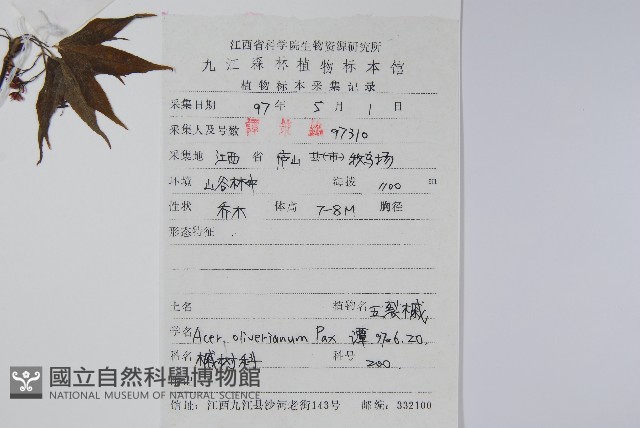 江西省科学院生物资源研究所
九江森林植物标本馆
植物标本采集记录
采集日期 97年 5月 1日
采集人及号数 97310
采集地 江西省 庐山 县(市) 牧马场
环境 山谷林中 海拔 1100 m
性状 乔木 体高 7-8M 胸径
形态特征
土名 植物名 五裂槭
学名 Acer oliverianum Pax 谭 97.6.20.
科名 槭树科 科号 200.
國立自然科學博物館
NATIONAL MUSEUM OF NATURAL SCIENCE
馆址:江西九江县沙河老街143号 邮编:332100